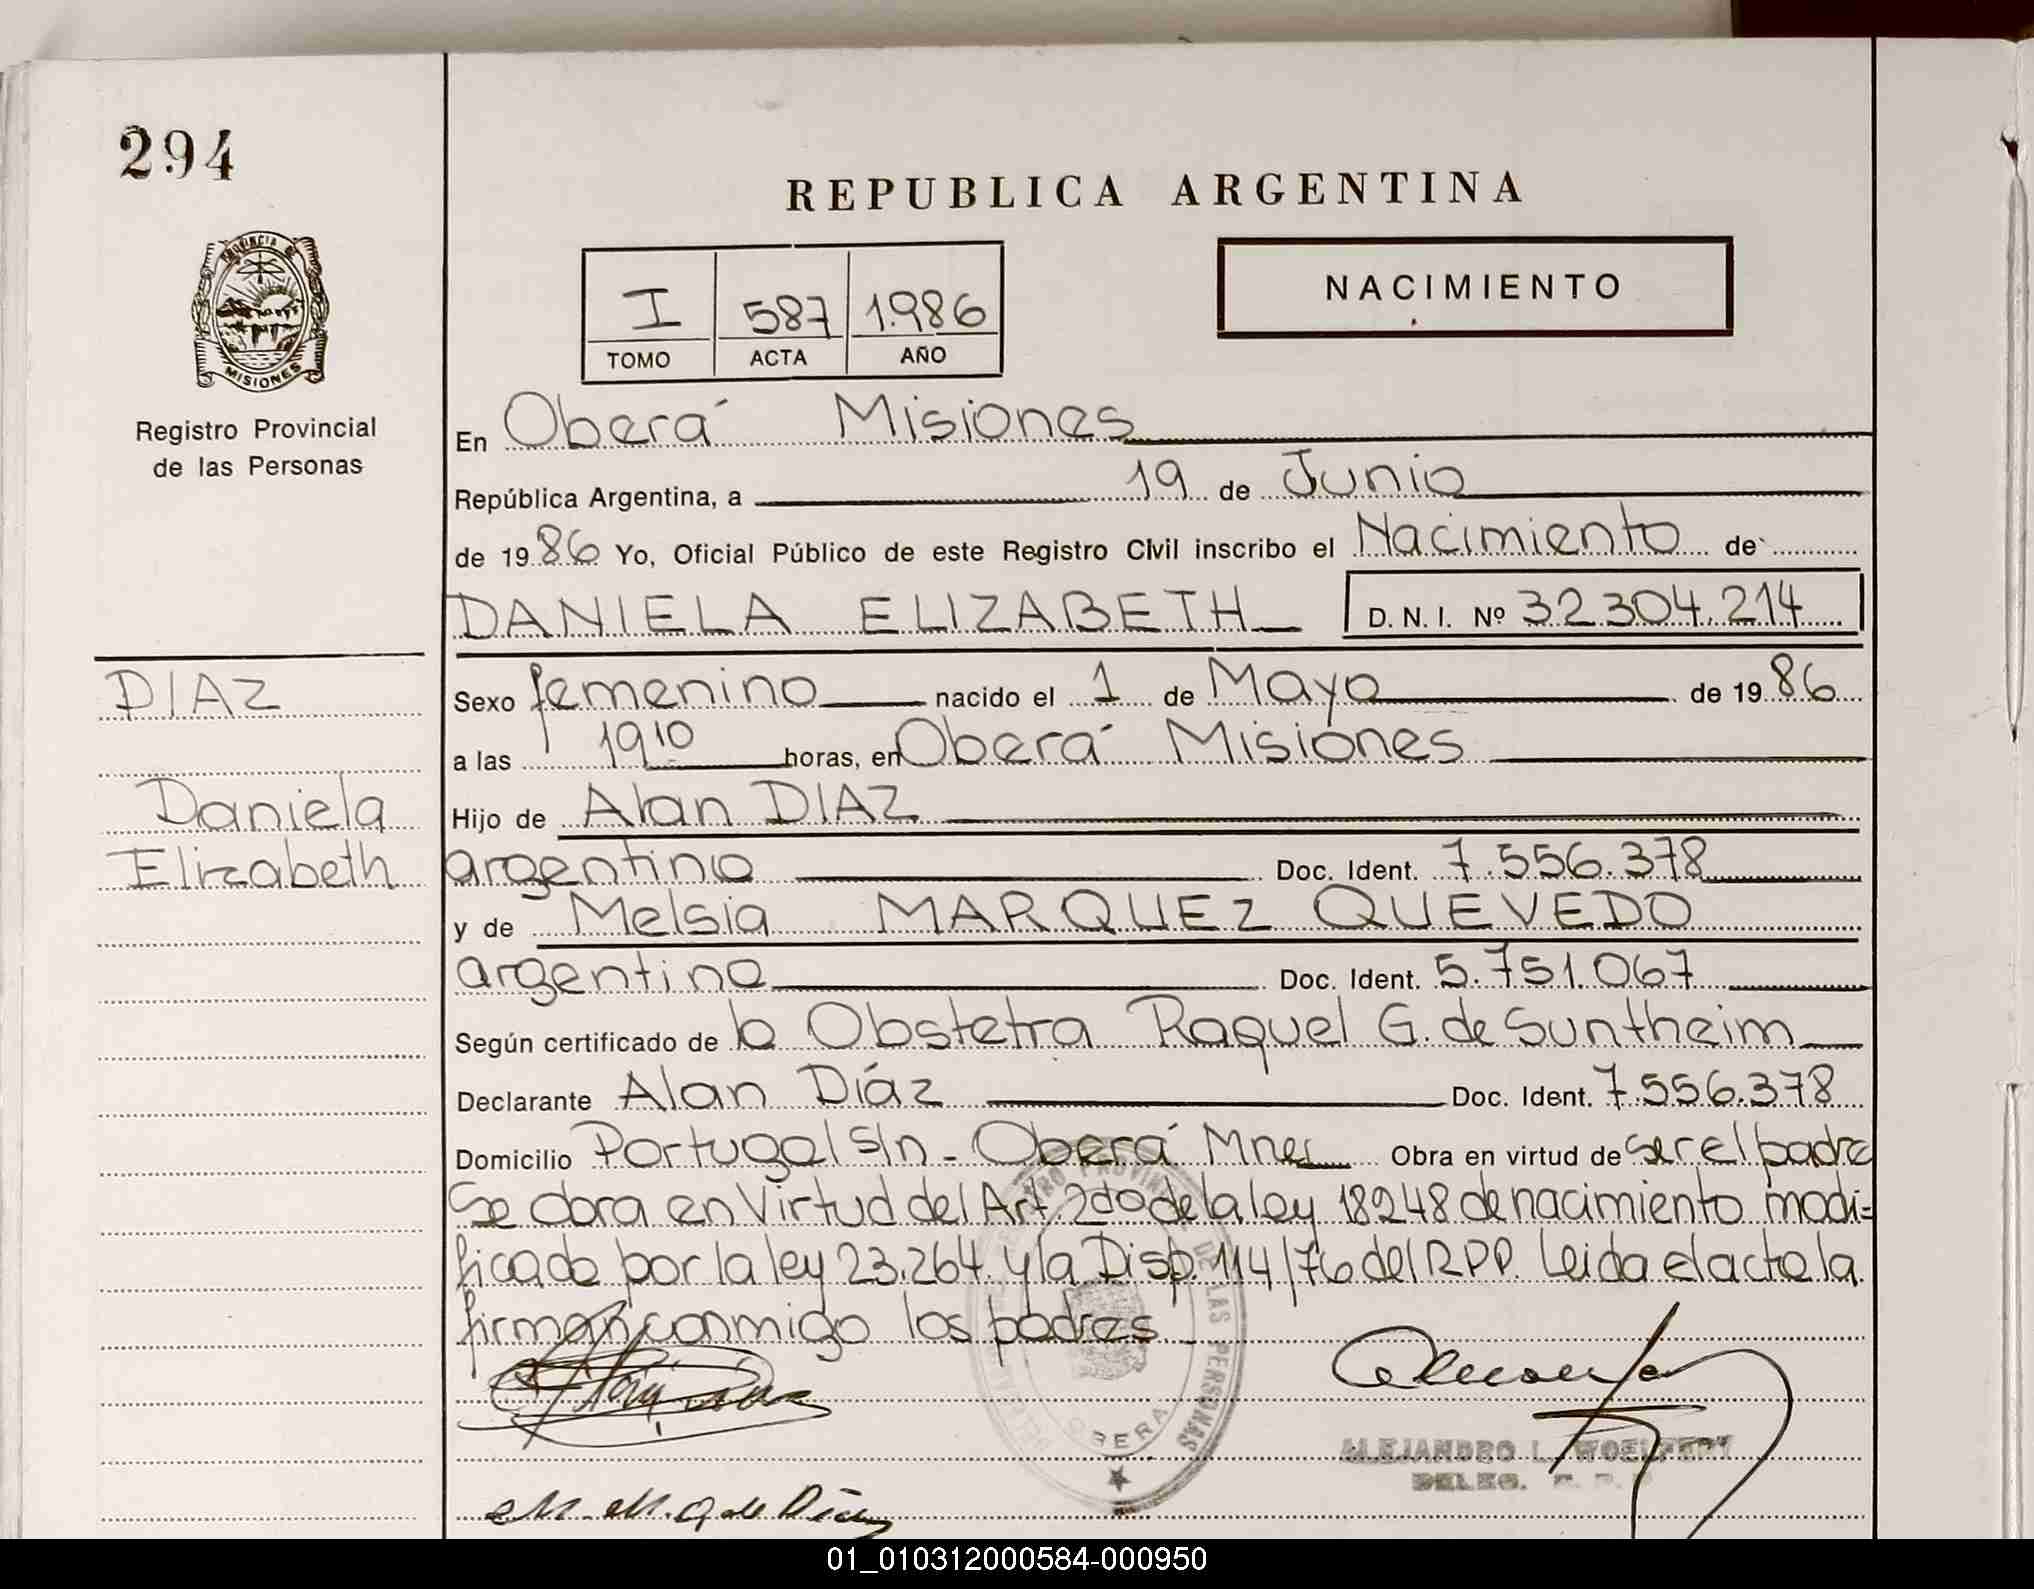 294
REPUBLICA ARGENTINA
PROVINCIA DE
MISIONES
Registro Provincial
de las Personas
I 587 1.986
TOMO ACTA AÑO
NACIMIENTO
En Oberá Misiones
República Argentina, a 19 de Junio
de 1986 Yo, Oficial Público de este Registro Civil inscribo el Nacimiento de
DANIELA ELIZABETH D. N. I. Nº 32.304.214
DIAZ
Daniela
Elizabeth
Sexo femenino nacido el 1 de Mayo de 1986
a las 19 10 horas, en Oberá Misiones
Hijo de Alan DIAZ
argentino Doc. Ident. 7.556.378
y de Melsia MARQUEZ QUEVEDO
argentina Doc. Ident. 5.751.067
Según certificado de la Obstetra Raquel G. de Suntheim
Declarante Alan Díaz Doc. Ident. 7.556.378
Domicilio Portugal s/n - Oberá Mnes Obra en virtud de ser el padre
Se obra en Virtud del Art. 2do de la ley 18248 de nacimiento modi=
ficado por la ley 23.264 y la Disp. 114/76 del RPP. Leida el acta la
firman conmigo los padres
OBERA
DE LAS PERSONAS
ALEJANDRO L. WOELFERT
DELEG.
M. M. Q de Díaz
01_010312000584-000950